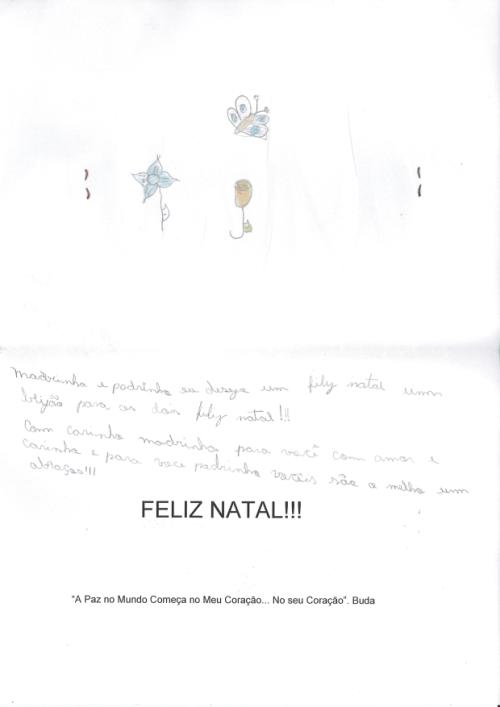 madrinha e padrinho eu deseja um fily natal umm
bijão para os dois fily natal!!!
Com carinho madrinha para você com amor e
carinha e para voce padrinho voceis são a melho um
abraços!!!
FELIZ NATAL!!!
"A Paz no Mundo Começa no Meu Coração... No seu Coração". Buda